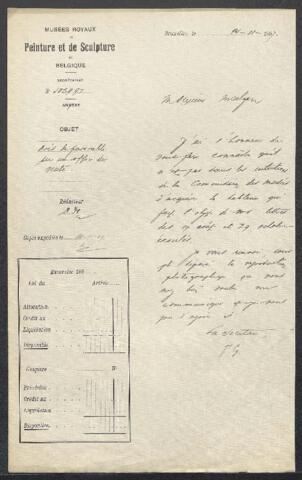 MUSÉES ROYAUX
DE
Peinture et de Sculpture
DE
BELGIQUE
SECRÉTARIAT
N°
ANNEXE
OBJET
Avis défavorable
sur une offre de
vente
Rédacteur
Copie expédiée le
Exercice 190
Art. du
Article
Allocation
Crédit au
Liquidation
Disponible
Compare
N°
Prévision
Crédit au
Liquidation
Disponible
Bruxelles, le
Monsieur
J'ai l'honneur de
vous faire connaître qu'il
n'est pas dans les intentions
de la Commission des musées
d'acquérir le tableau qui
fait l'objet de vos lettres
des 17 août et 29 octobre
écoulés.
Je vous renvoie sous
pli séparé la reproduction
photographique que vous
avez bien voulu me
communiquer
Le Secrétaire